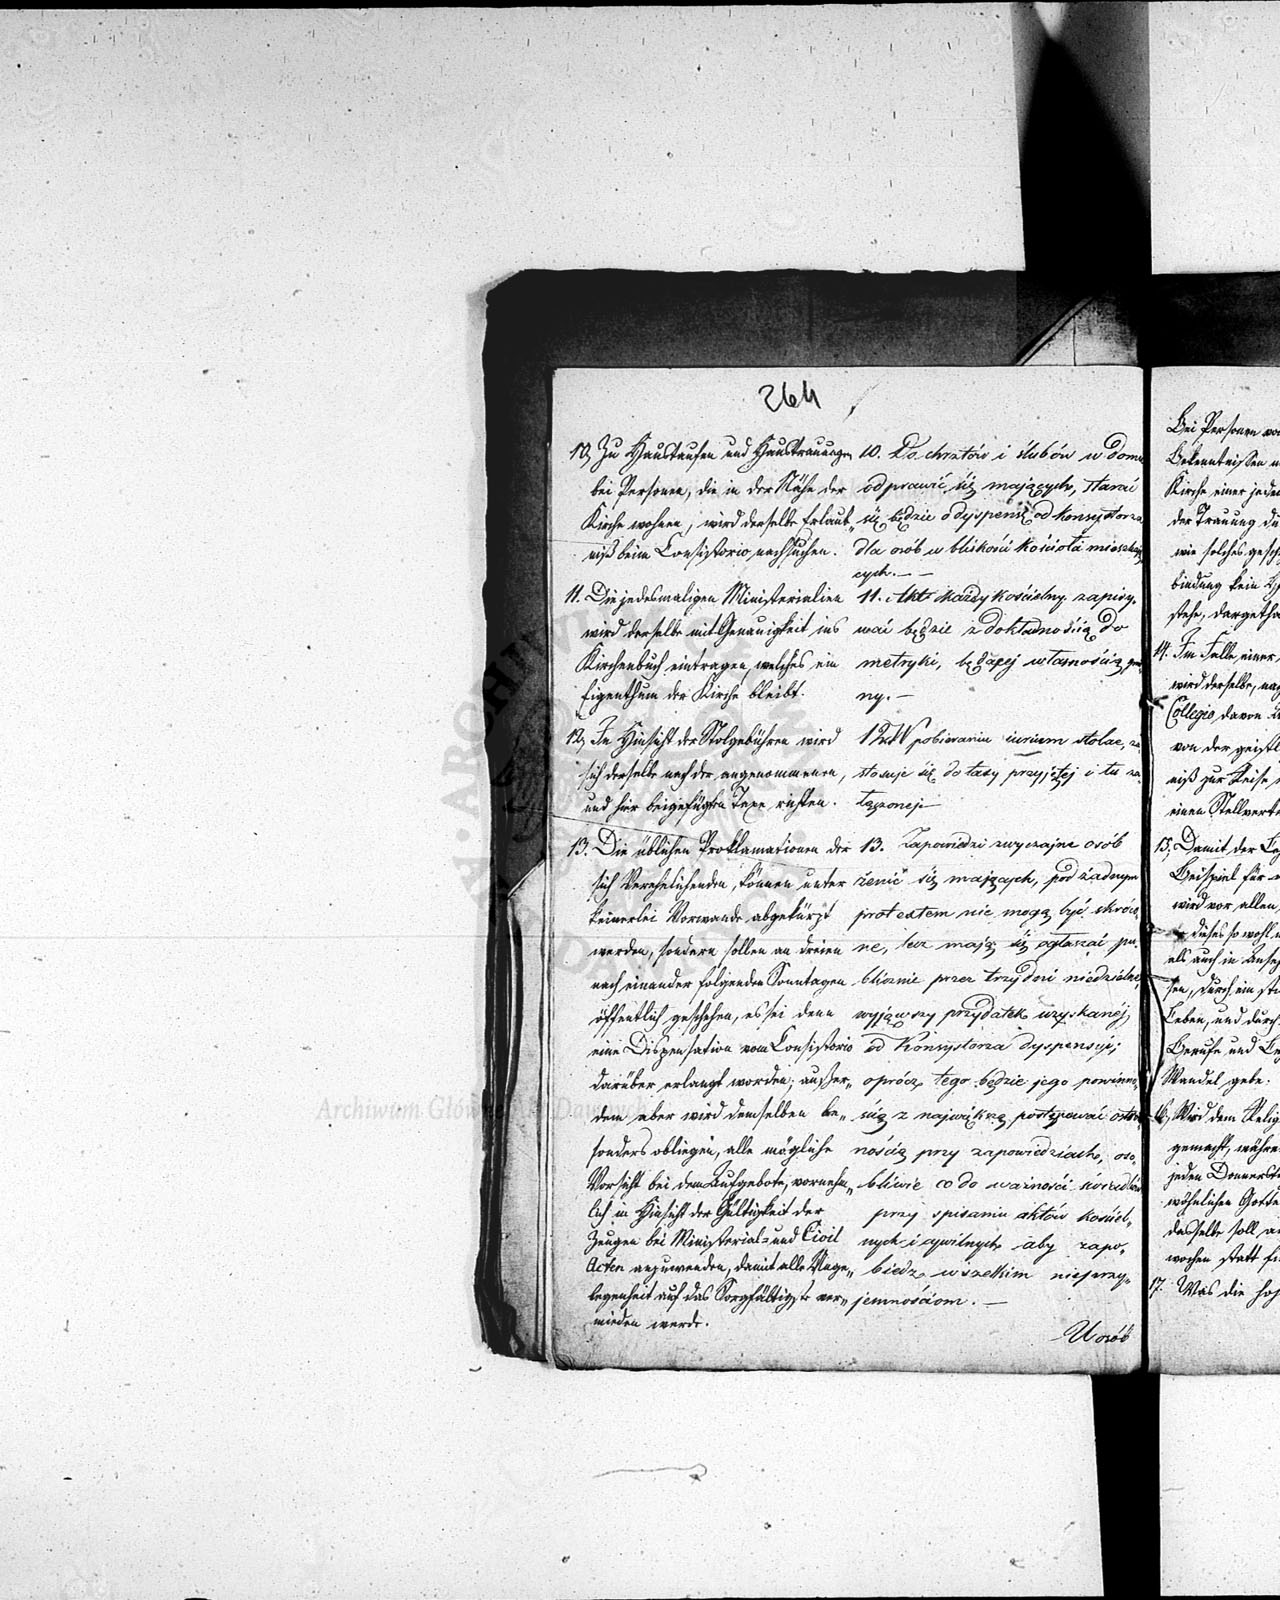 264
10, Zu Haustaufen und Haustrauungen
bei Personen, die in der Nähe der
Kirche wohnen, wird derselbe Erlaub„
niß beim Consistorio nachsuchen.
11. Die jedesmaligen Ministerialien
wird derselbe mit Genauigkeit ins
Kirchenbuch eintragen, welches ein
Eigenthum der Kirche bleibt.
12, In Hinsicht der Stolgebühren wird
sich derselbe nach der angenommenen,
und hier beigefügten Taxe richten.
13. Die üblichen Proklamationen der
sich Verehelichenden, können unter
keinerlei Vorwande abgekürzt
werden, sondern sollen an dreien
nach einander folgenden Sonntagen
öffentlich geschehen, es sei denn
eine Dispensation vom Consistorio
darüber erlangt worden; außer„
dem aber wird demselben be„
sonders obliegen, alle mögliche
Vorsicht bei dem Aufgebote, vornehm„
lich in Hinsicht der Gültigkeit der
Zeugen bei Ministerial= und Civil
Acten anzuwenden, damit alle Unge„
legenheit auf das Sorgfältigste ver„
mieden werde.
10. Do chrztów i ślubów w domu
odprawić się mających, starać
się będzie o dyspensę od Konsystorza
dla osób w bliskości Kościoła mieszkają
cych. — —
11. Akt każdy kościelny zapisy„
wać będzie z dokładnością do
metryki, będącej własnością
ny. —
12. W pobieraniu iurium stolae, za
stosuje się do taxy przyjętej i tu za„
łączonej —
13. Zapowiedzi zwyczajne osób
żenić się mających, pod żadnym
protextem nie mogą być skróco„
ne, lecz mają się ogłaszać pu„
blicznie przez trzy dni niedzielne,
wyjąwszy przydatek uzyskanéj
od Konsystorza dyspensyi;
oprócz tego będzie jego powinno„
ścią z największą postępować ostro„
nością przy zapowiedziach, oso„
bliwie co do ważności świadków
przy spisaniu aktów kościel„
nych i cywilnych aby zapo„
biedz wszelkim nieprzy„
jemnościom. —
U osób
Bei Personen
Bekenntnissen
Kirche einer jeden
der Trauung
wie solches
bindung kein
stehe, dargetha
14. Im Falle einer
wird derselbe,
Collegio davon
von der geistl
niß zur Reise
einen Stellvertre
15, Damit der
Beispiel für
wird vor allen,
dieses sowohl
als auch in
sen, durch ein
Leben, und durch
Berufe und
Wandel gebe.
16, Wird dem Relig
gemacht, währen
jeden Donnerst
wöhnlichen Gottes
dasselbe soll
wochen statt
17. Was die